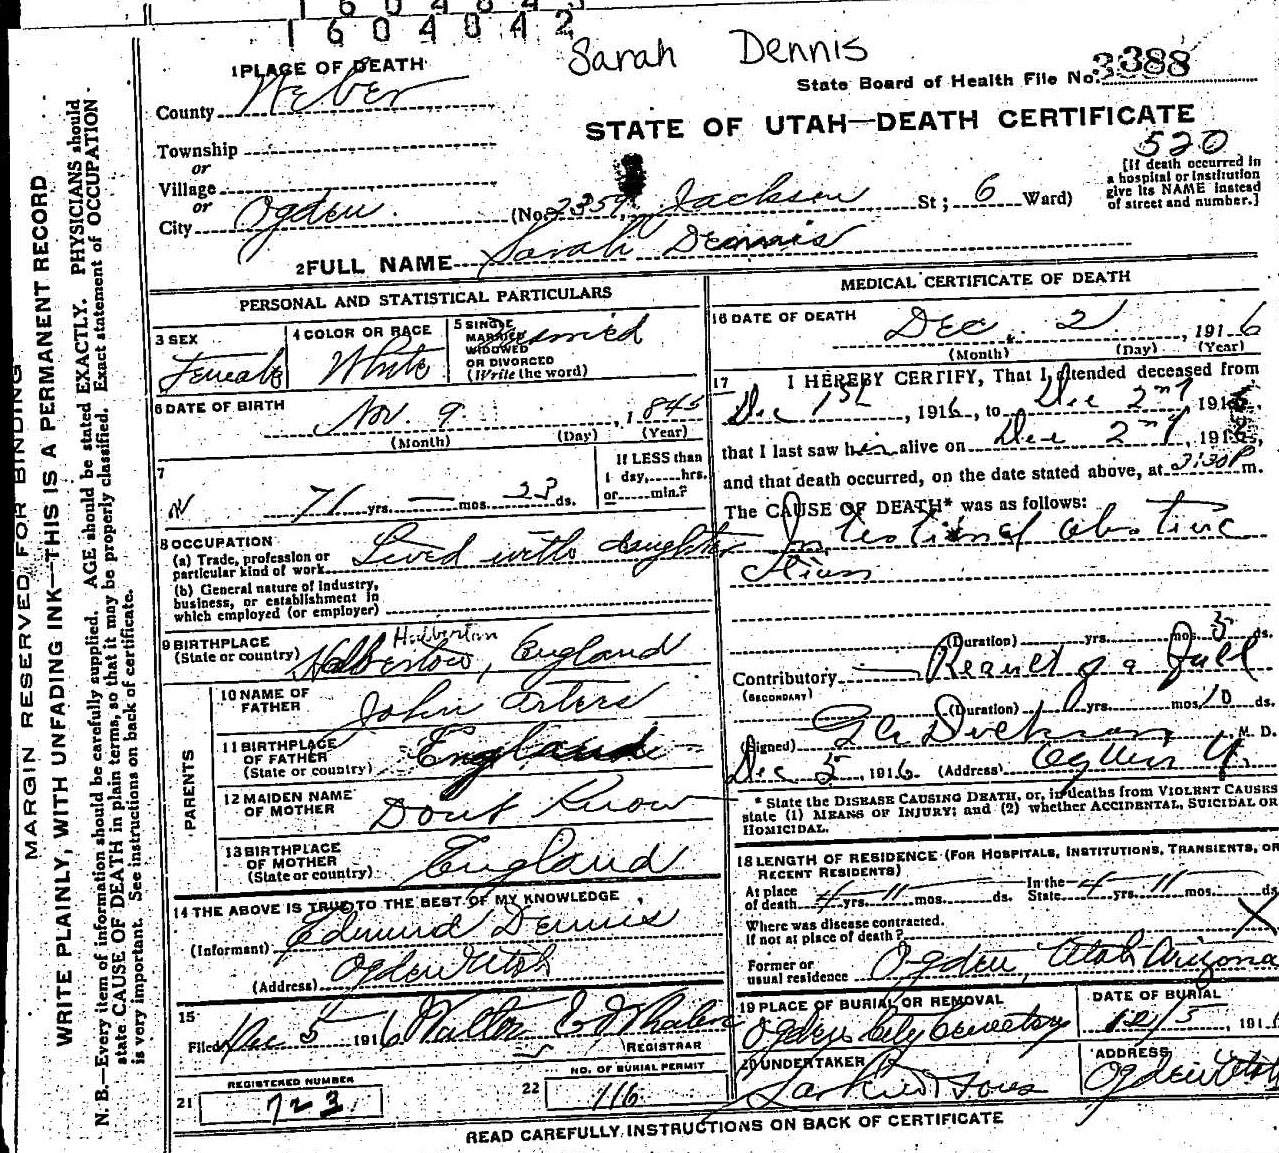 1604842
Sarah Dennis
1 PLACE OF DEATH
State Board of Health File No. 3388
County Weber
STATE OF UTAH—DEATH CERTIFICATE
520
Township
or
Village
or
City Ogden. (No. 2359, Jackson St; 6 Ward)
[If death occurred in
a hospital or institution
give its NAME instead
of street and number.]
2 FULL NAME Sarah Dennis
PERSONAL AND STATISTICAL PARTICULARS
3 SEX
Female
4 COLOR OR RACE
White
5 SINGLE
MARRIED
WIDOWED
OR DIVORCED
(Write the word)
6 DATE OF BIRTH
Nov. 9. , 1845
(Month) (Day) (Year)
7
71 yrs. — mos. 23 ds.
If LESS than
1 day, hrs.
or min.?
8 OCCUPATION
(a) Trade, profession or
particular kind of work Lived with daughter
(b) General nature of industry,
business, or establishment in
which employed (or employer)
9 BIRTHPLACE
(State or country) Halberton, England
Halberton
PARENTS
10 NAME OF
FATHER John
11 BIRTHPLACE
OF FATHER
(State or country) England
12 MAIDEN NAME
OF MOTHER Dont Know
13 BIRTHPLACE
OF MOTHER
(State or country) England
14 THE ABOVE IS TRUE TO THE BEST OF MY KNOWLEDGE
(Informant) Edmund Dennis
(Address) Ogden Utah
15
Filed Dec 5 1916 Walter E Whalen
REGISTRAR
21 REGISTERED NUMBER
723
22 NO. OF BURIAL PERMIT
116
MEDICAL CERTIFICATE OF DEATH
16 DATE OF DEATH
Dec. 2 , 1916
(Month) (Day) (Year)
17 I HEREBY CERTIFY, That I attended deceased from
Dec 1st, 1916, to Dec 2nd 1916,
that I last saw her alive on Dec 2nd, 1916,
and that death occurred, on the date stated above, at 2:30 P m.
The CAUSE OF DEATH* was as follows:
Intestinal obstruc
tion
(Duration) yrs. mos. 5 ds.
Contributory Result of a fall
(SECONDARY)
(Duration) yrs. mos. 10 ds.
(Signed) Dickson M. D.
Dec 5, 1916. (Address) Ogden U.
* State the DISEASE CAUSING DEATH, or, in deaths from VIOLENT CAUSES
state (1) MEANS OF INJURY; and (2) whether ACCIDENTAL, SUICIDAL OR
HOMICIDAL.
18 LENGTH OF RESIDENCE (FOR HOSPITALS, INSTITUTIONS, TRANSIENTS, OR
RECENT RESIDENTS)
At place
of death 4 yrs. 11 mos. ds.
In the
State 4 yrs. 11 mos. ds
Where was disease contracted.
If not at place of death? X
Former or
usual residence Ogden, Utah Arizona
19 PLACE OF BURIAL OR REMOVAL
Ogden City Cemetery
DATE OF BURIAL
12/5, 191
20 UNDERTAKER
Larkin & Sons
ADDRESS
Ogden Utah
READ CAREFULLY INSTRUCTIONS ON BACK OF CERTIFICATE
MARGIN RESERVED FOR BINDING
WRITE PLAINLY, WITH UNFADING INK—THIS IS A PERMANENT RECORD
N. B.—Every item of information should be carefully supplied. AGE should be stated EXACTLY. PHYSICIANS should
state CAUSE OF DEATH in plain terms, so that it may be properly classified. Exact statement of OCCUPATION
is very important. See instructions on back of certificate.